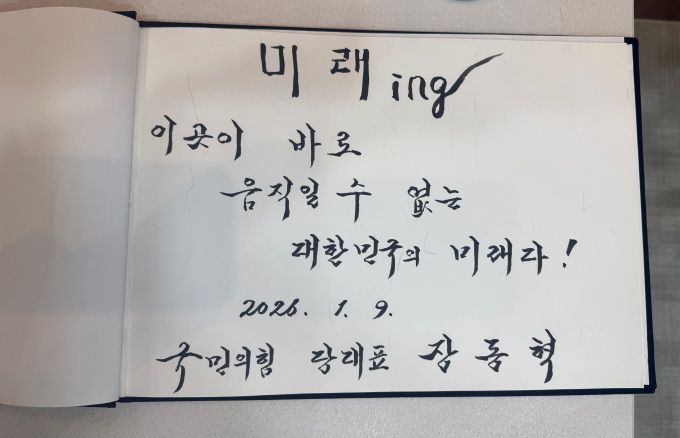 미래ing
이곳이 바로
움직일 수 없는
대한민국의 미래다!
2026. 1. 9.
국민의힘 당대표 장동혁